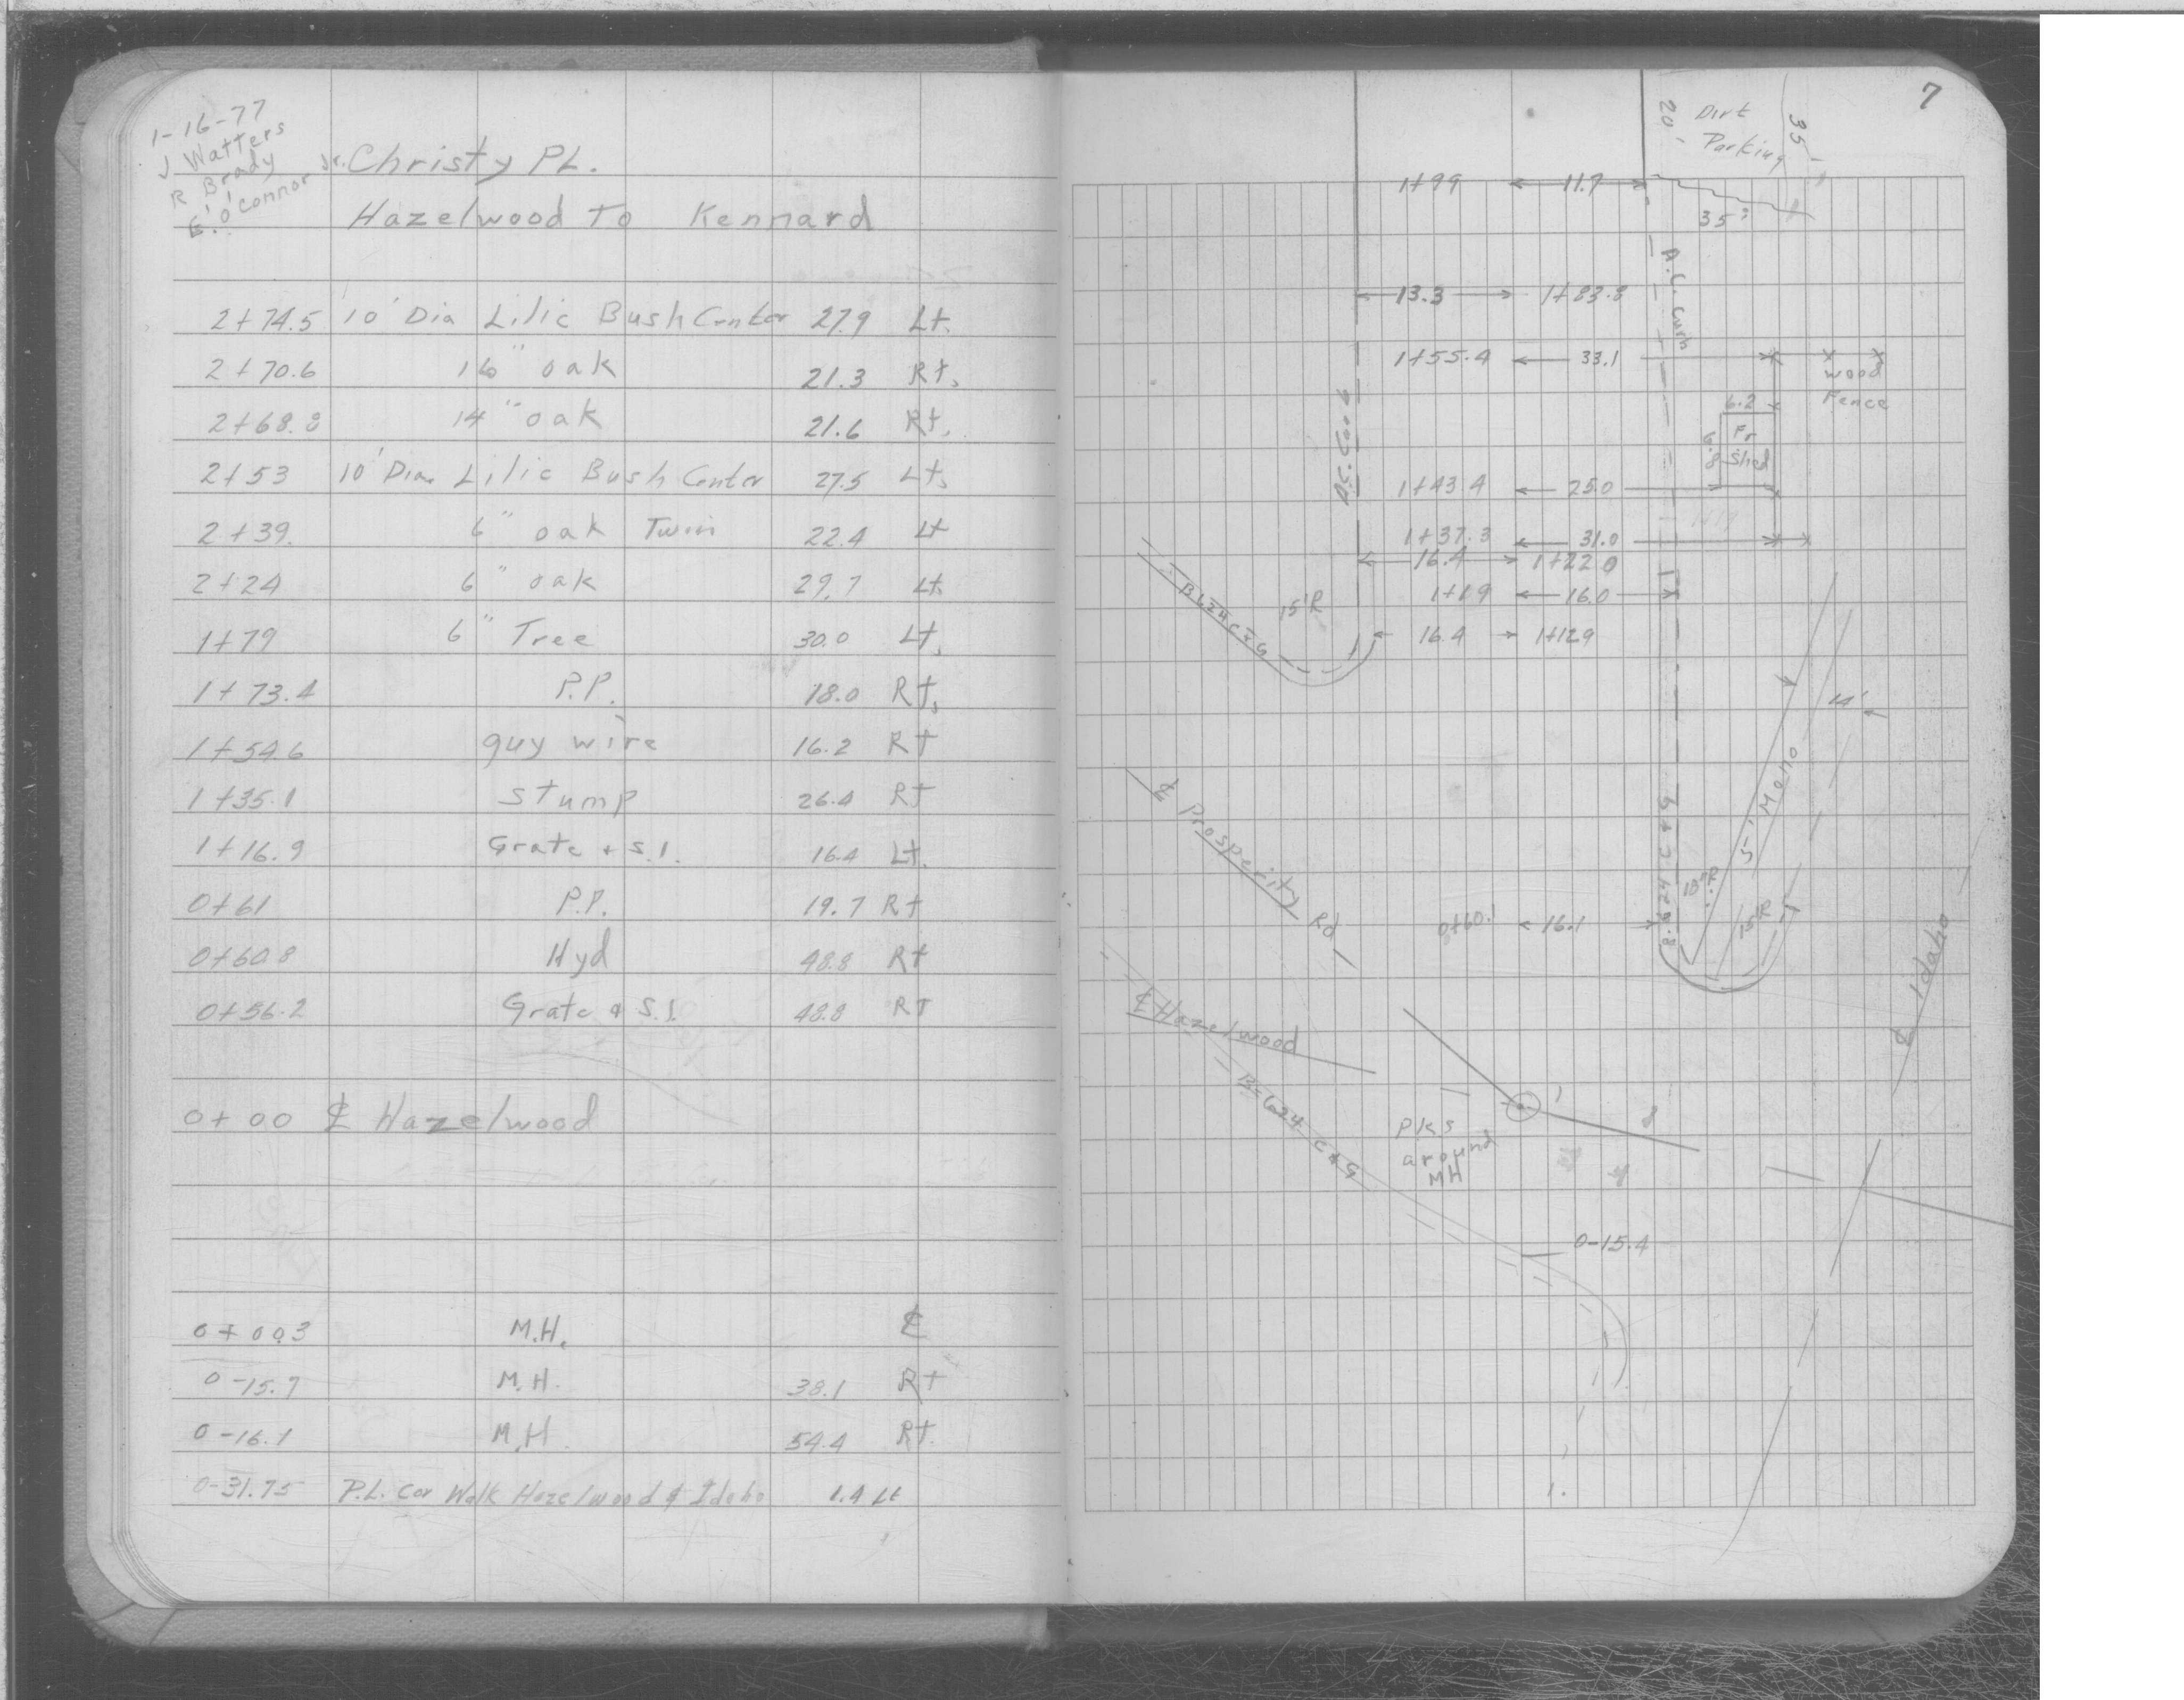 1-16-77
J Watters
R Brady
E. O'Connor Jr.
Christy PL.
Hazelwood To Kennard
2+74.5 10' Dia Lilic Bush Center 27.9 Lt.
2+70.6 16" oak 21.3 Rt.
2+68.8 14" oak 21.6 Rt.
2+53 10' Dia. Lilic Bush Center 27.5 Lt.
2+39. 6" oak Twin 22.4 Lt
2+24 6" oak 29.7 Lt.
1+79 6" Tree 30.0 Lt.
1+73.4 P.P. 18.0 Rt.
1+54.6 guy wire 16.2 Rt
1+35.1 stump 26.4 Rt
1+16.9 Grate + S.I. 16.4 Lt.
0+61 P.P. 19.7 Rt
0+60.8 Hyd 48.8 Rt
0+56.2 Grate & S.I. 48.8 RT
0+00 ℄ Hazelwood
0+00.3 M.H. ℄
0-15.7 M.H. 38.1 Rt
0-16.1 M.H. 54.4 Rt.
0-31.75 P.L. Cor Walk Hazelwood & Idaho 1.4 Lt
7
20
Dirt
Parking
35
1+99 11.7
35'
13.3 1+83.8
A.C. Curb
1+55.4 33.1
wood
Fence
6.2
Fr
Shed
6.8
A.C. Curb
1+43.4 25.0
1+37.3 31.0
16.4 1+22.0
1+19 16.0
16.4 1+12.9
15'R
B 624 C & G
14'
5' Mono
B 624 C & G
℄ Prosperity Rd
10'R
15'R
0+60.1 16.1
℄ Idaho
℄ Hazelwood
B-624 C & G
PKs
around
MH
0-15.4